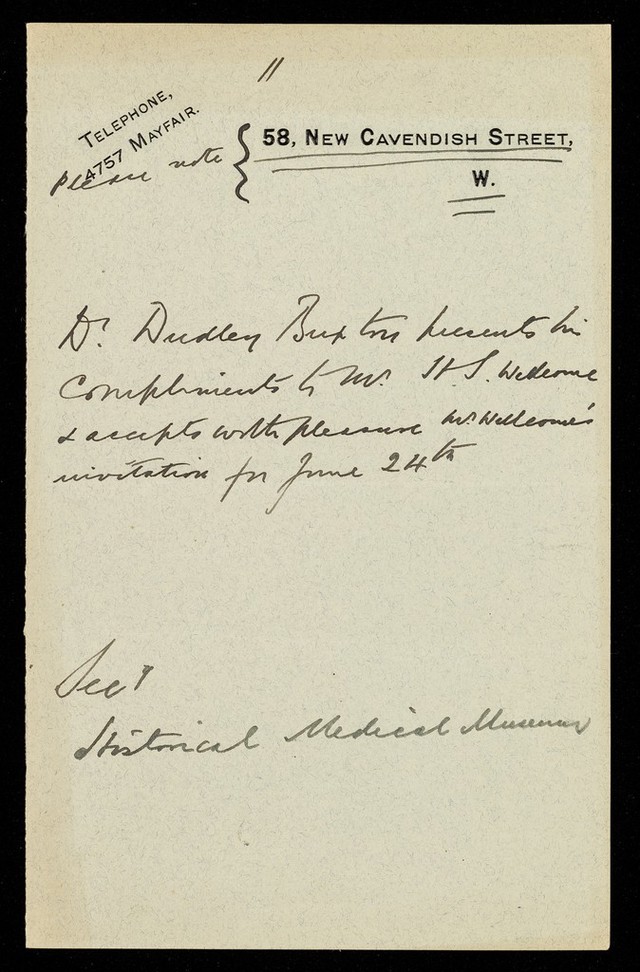 11
TELEPHONE,
4757 MAYFAIR.
Please note
58, NEW CAVENDISH STREET,
W.
Dr. Dudley Buxton presents his
compliments to Mr. H. S. Wellcome
& accepts with pleasure Mr. Wellcome's
invitation for June 24th
Secy
Historical Medical Museum